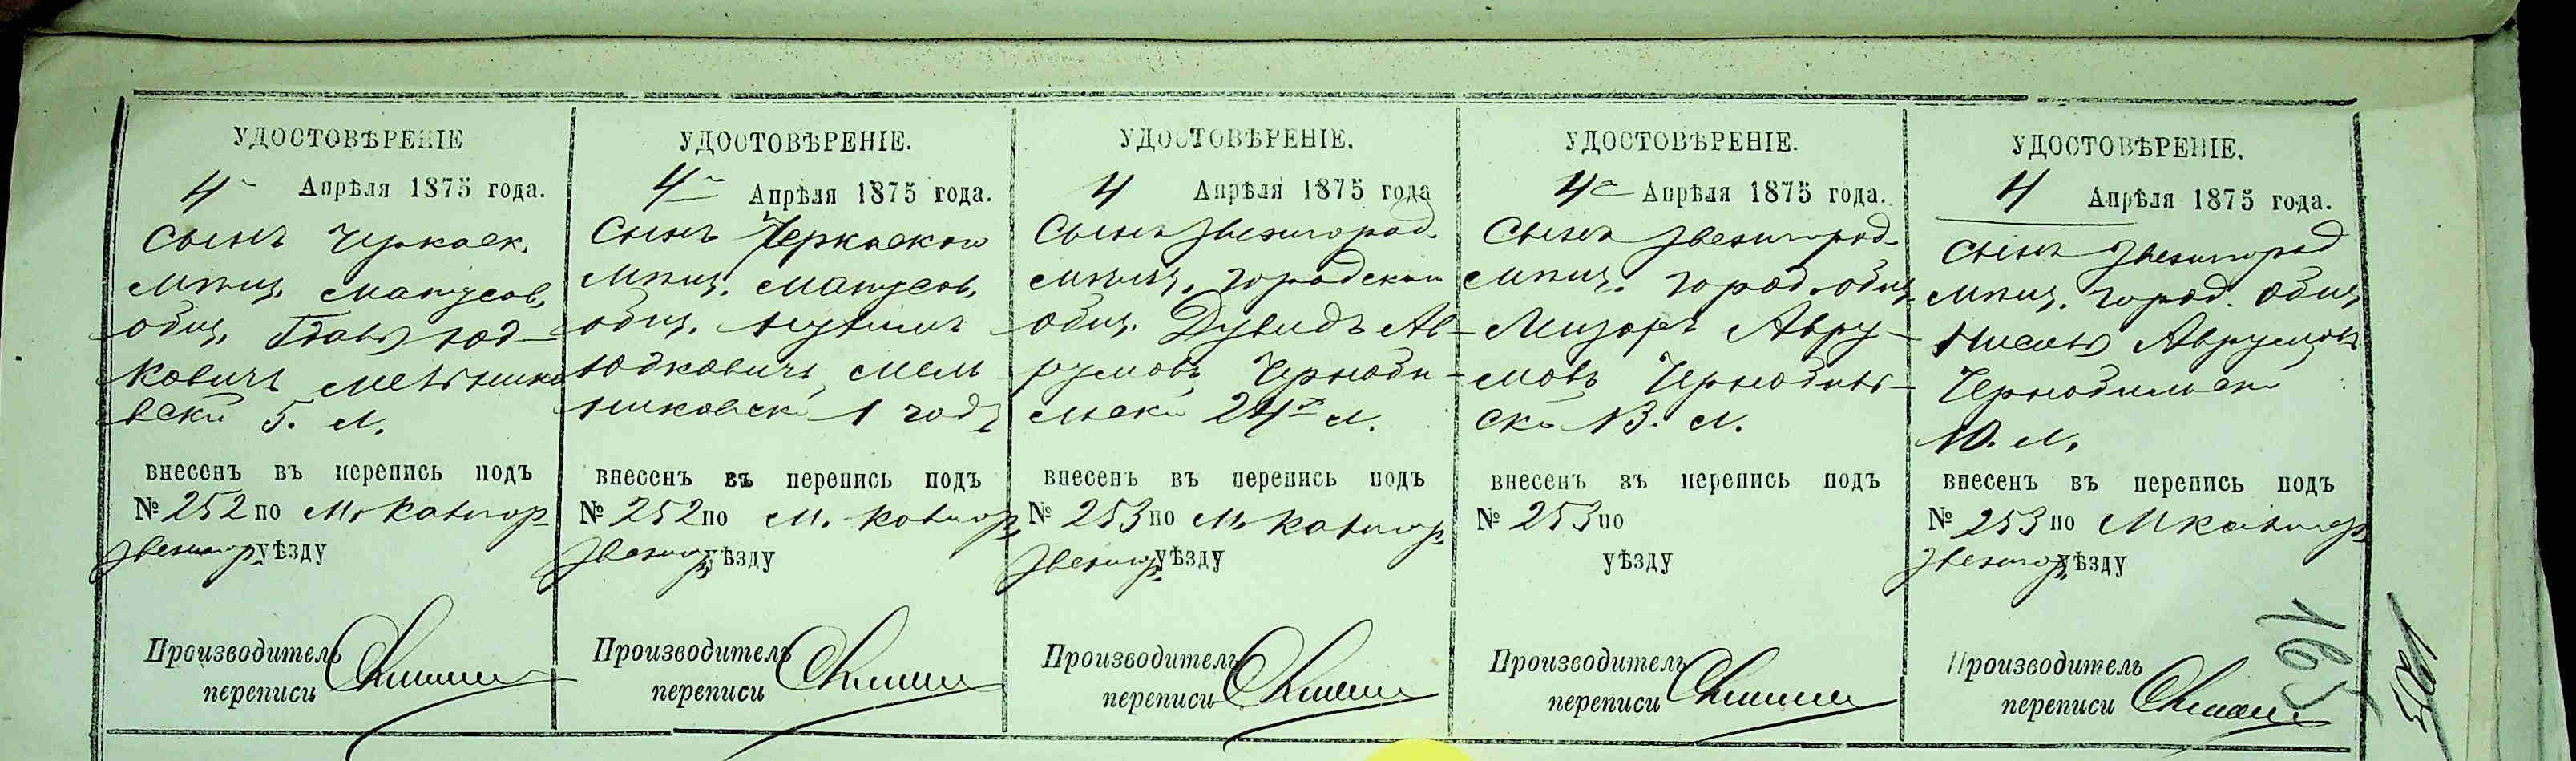 УДОСТОВѢРЕНІЕ
4 Апрѣля 1875 года.
Сынъ Черкаск.
мѣщ. Матусов.
общ. юд-
ковичъ Мельнико
вскій 5. л.
внесенъ въ перепись подъ
№ 252 по М. Катыгор.
Звенигор. уѣзду
Производитель
переписи
УДОСТОВѢРЕНІЕ.
4 Апрѣля 1875 года.
Сынъ Черкаскаго
мѣщ. Матусов.
общ.
Юдковичъ Мель
никовскі 1 годъ
внесенъ въ перепись подъ
№ 252 по М. Катыгор.
Звенигор. уѣзду
Производитель
переписи
УДОСТОВѢРЕНІЕ.
4 Апрѣля 1875 года
Сынъ Звенигород.
мѣщ. городского
общ. Дувидъ Ав-
румовъ Чернобы-
льскі 24 л.
внесенъ въ перепись подъ
№ 253 по М. Катыгор.
Звенигор. уѣзду
Производитель
переписи
УДОСТОВѢРЕНІЕ.
4 Апрѣля 1875 года.
Сынъ Звенигород-
мѣщ. город. общ.
Авру-
мовъ Чернобыль-
скі 13. л.
внесенъ въ перепись подъ
№ 253 по
уѣзду
Производитель
переписи
УДОСТОВѢРЕНІЕ.
4 Апрѣля 1875 года.
Сынъ Звенигород
мѣщ. город. общ.
Аврумовъ
Чернобыльскі
10. л.
внесенъ въ перепись подъ
№ 253 по М Катыгор.
Звенигор. уѣзду
Производитель
переписи
165